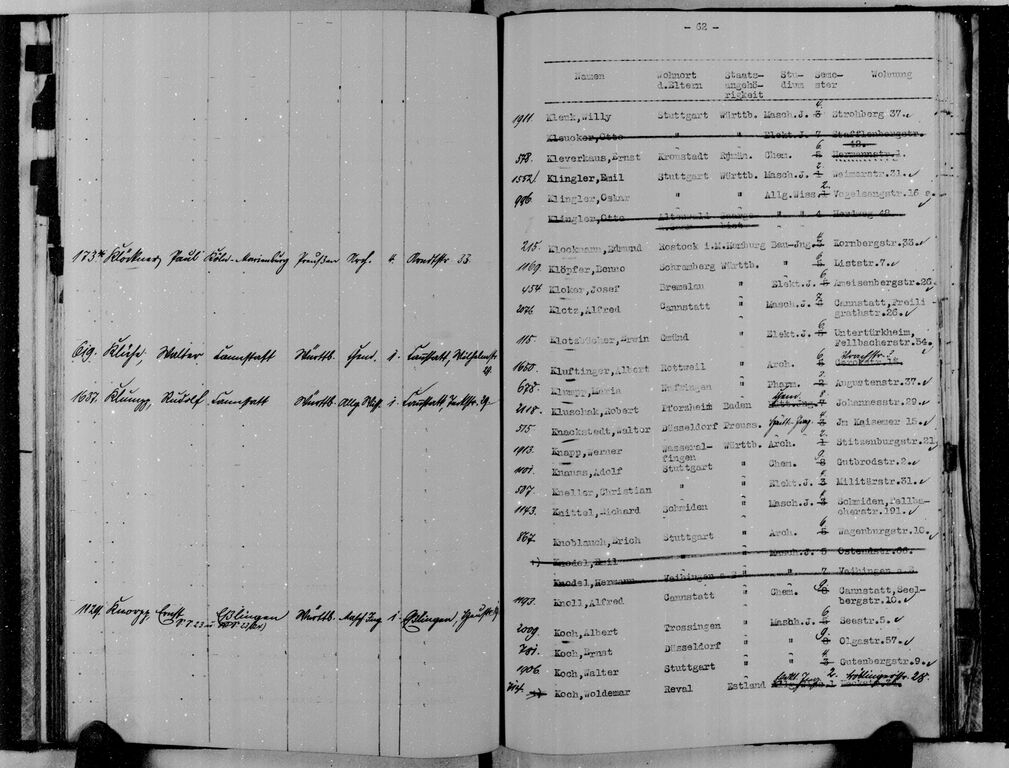 173. Klöckner, Paul Köln-Marienburg Preußen Arch. 4. Arndtstr. 33.
619. Walter Cannstatt Württb. Chem. 1. Cannstatt, Wilhelmstr.
1657. Klumpp, Rudolf Cannstatt Württb. Allg. Wiss. 1. Cannstatt,
1124. Knorpp Ernst Esslingen Württb. Masch. Ing. 1. Esslingen,
- 62 -
Namen Wohnort Staats- Stu- Seme- Wohnung
d.Eltern angehö- dium ster
rigkeit
4.
1911 Klenk,Willy Stuttgart Württb. Masch.J. 3 Strohberg 37.
Kleucker,Otto " " Elekt.J. 7 Stafflenbergstr.
42.
6
578. Kleverkaus,Ernst Kronstadt Rumän. Chem. 5 Hermannstr.1.
2.
1552 Klingler,Emil Stuttgart Württb. Masch.J. 1 Weimarstr.31.
2.
906 Klingler,Oskar " " Allg.Wiss. 1 Vogelsangstr.16
Klingler,Otto Altenwald Saarge- " 4 Herdweg 48.
biet
215. Klockmann,Edmund Rostock i.M. Hamburg Bau-Jng. Kornbergstr.33.
6
1169. Klöpfer,Benno Schramberg Württb. " 5 Liststr.7.
6
454 Kloker,Josef Bremelau " Elekt.J. 5 Ameisenbergstr.26
2076. Klotz,Alfred Cannstatt " Masch.J. Cannstatt,Freili
grathstr.26.
6
115. Klotzbücher,Erwin Gmünd Elekt.J. 5 Untertürkheim,
Fellbacherstr.54
6
1650. Kluftinger,Albert Rottweil " Arch. 5
8
678. Klumpp,Maria " Pharm. Augustenstr.37.
Chem.
2118. Kluschak,Robert Pforzheim Baden 7 Johannesstr.29.
4
515. Knackstedt,Walter Düsseldorf Preuss. 3 Jm Kaisemer 15.
2.
1913. Knapp,Werner Wasseral- Württb. Arch. 1 Stitzenburgstr.21
fingen
9
Knauss,Adolf Stuttgart " Chem. 8 Gutbrodstr.2.
587. Kneller,Christian " " Elekt.J. 3 Militärstr.31.
1143. Knittel,Richard Schmiden " Masch.J. 3 Schmiden,Fellba-
cherstr.191.
6
867. Knoblauch,Erich Stuttgart " Arch. 5 Wagenburgstr.10.
Knodel,Emil " " Masch.J. 5 Ostendstr.66.
Knodel,Hermann Vaihingen a.F " " 7 Vaihingen a.F.
1193. Knoll,Alfred Cannstatt " Chem. Cannstatt,Seel-
bergstr.16.
6
2009. Koch,Albert Trossingen " Masch.J. 5 Seestr.5.
9.
781. Koch,Ernst Düsseldorf " " 8 Olgastr.57.
4.
1906. Koch,Walter Stuttgart " " 3 Gutenbergstr.9.
2.
714. Koch,Woldemar Reval Estland 28.